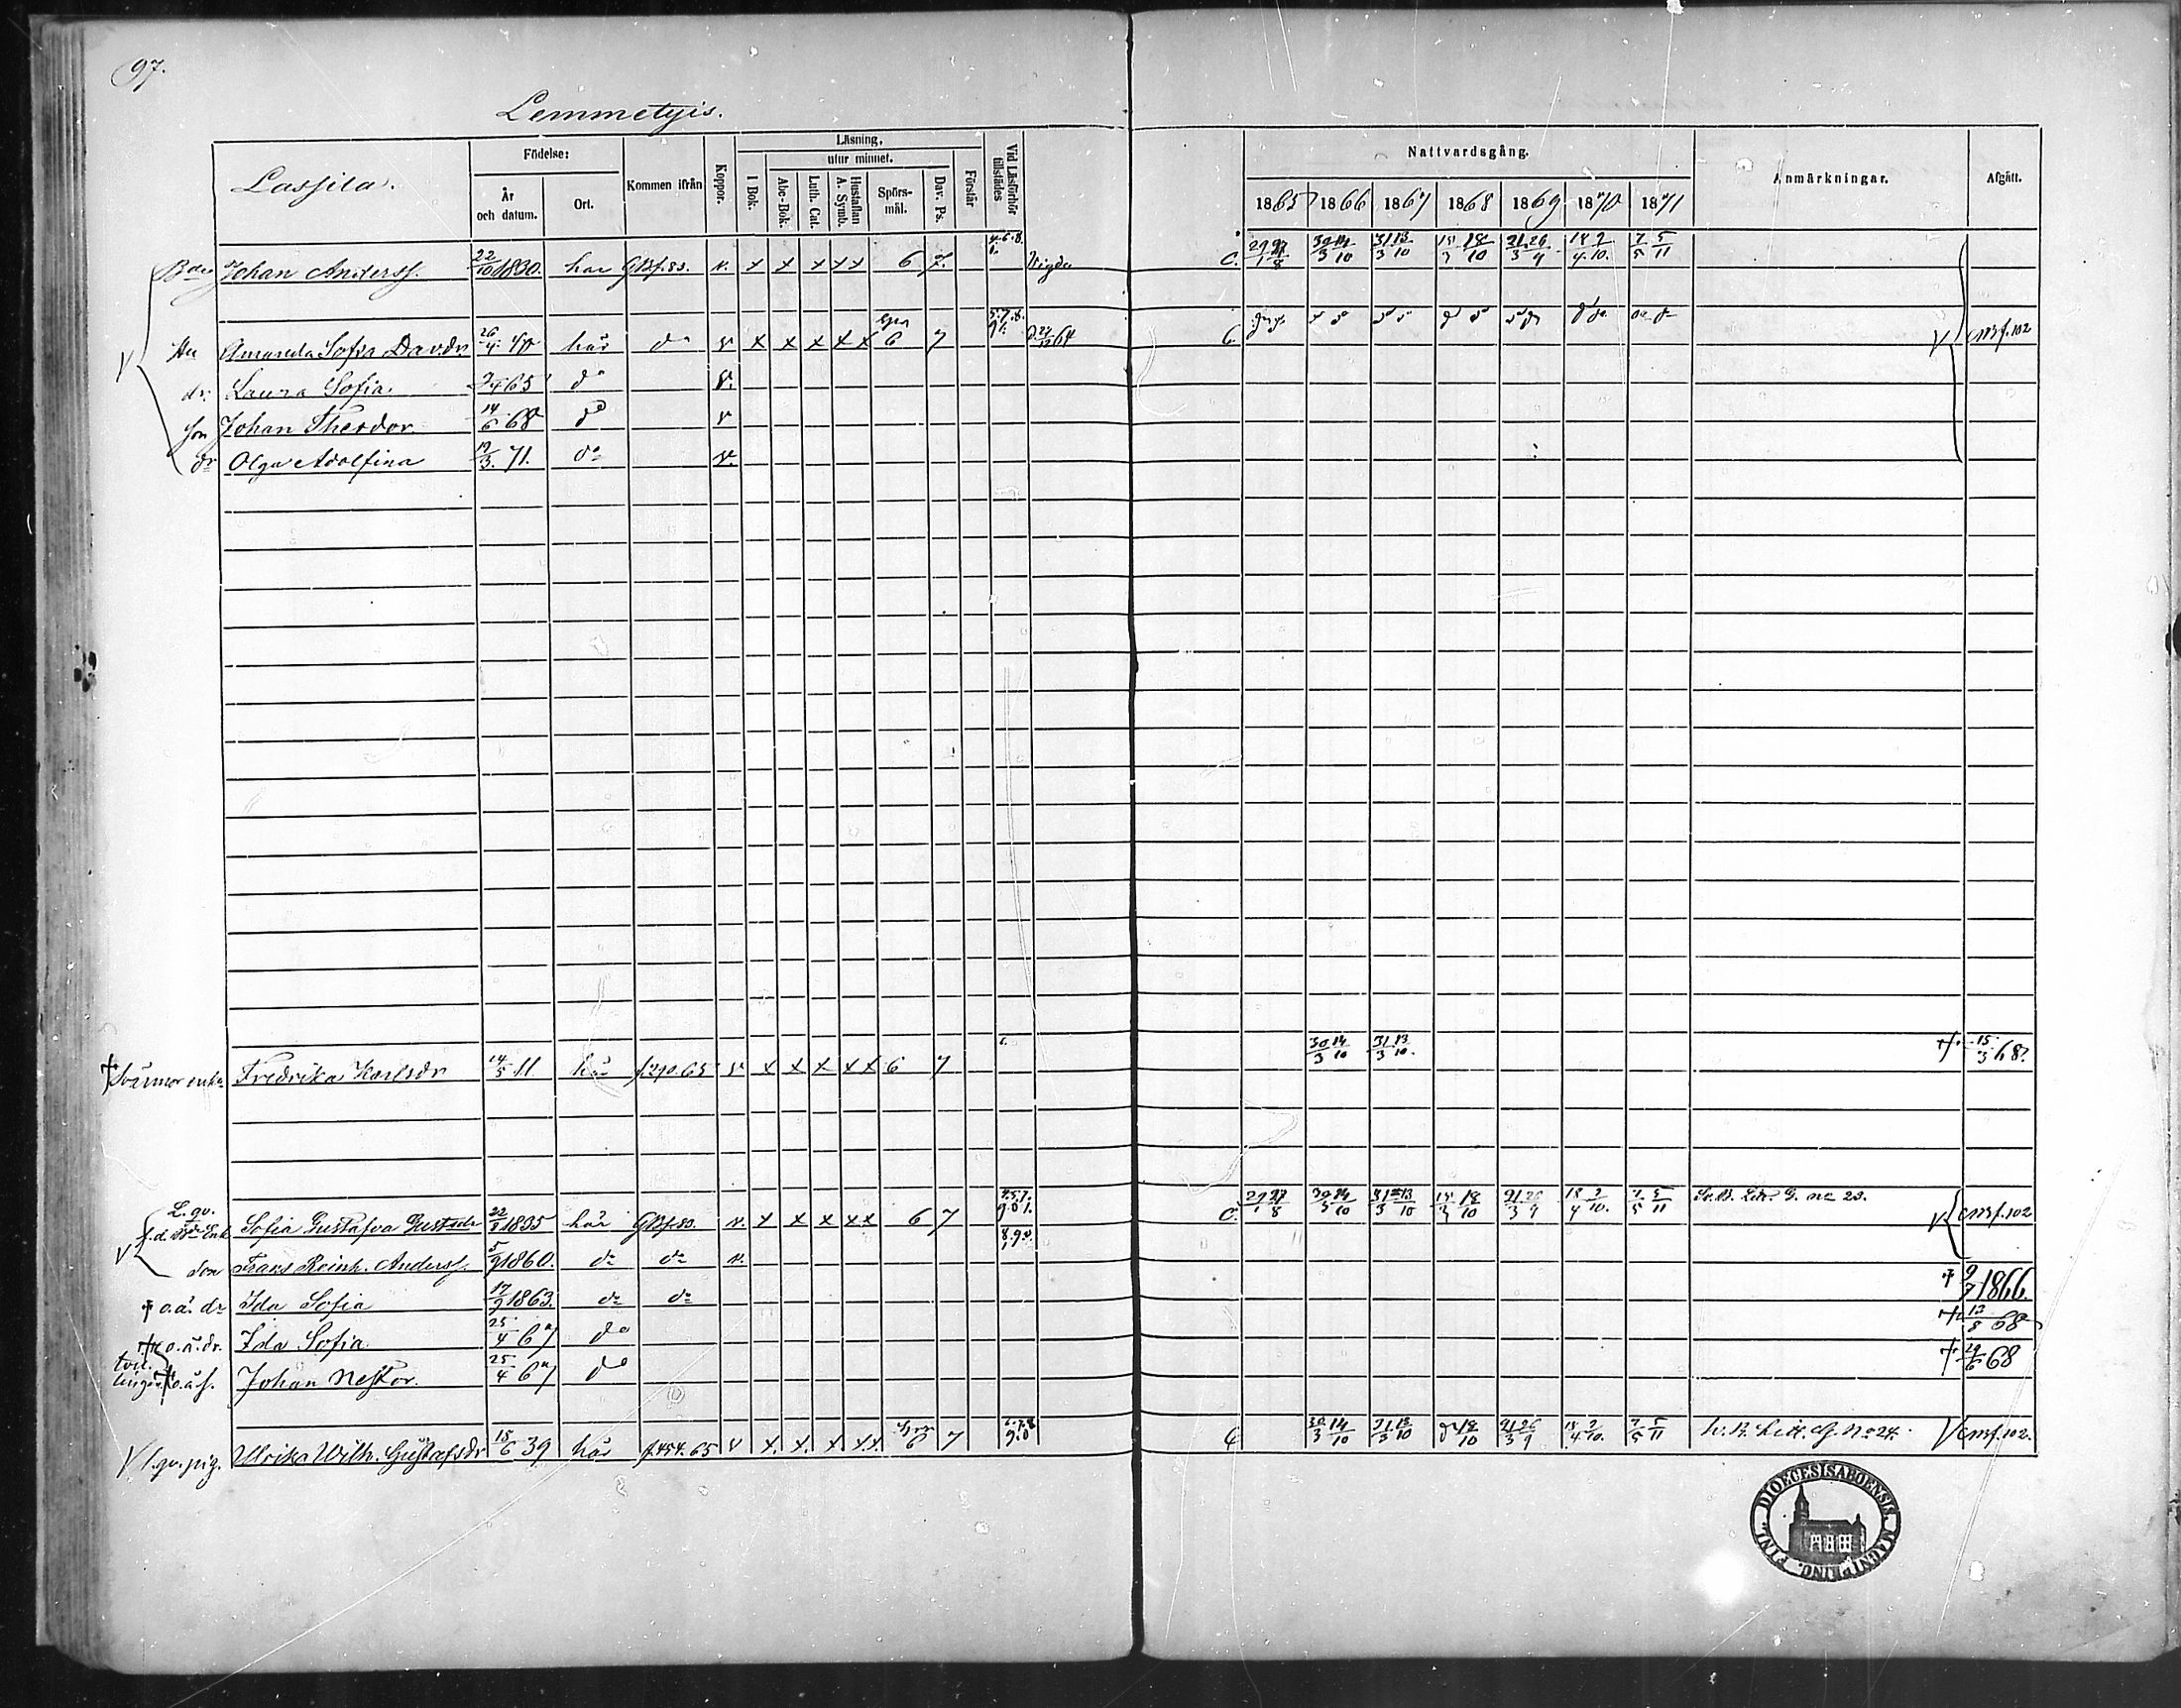 97.
Lemmetyis.
Lassila.
Födelse:
År och datum.
Ort.
Kommen ifrån
Koppor.
Läsning,
utur minnet.
I Bok.
Abc-Bok.
Luth. Cat.
Hustaflan A. Symb.
Spörs-mål.
Dav. Ps.
Förstår
Vid Läsförhör tillstädes
Nattvardsgång.
1865 1866 1867 1868 1869 1870 1871
Anmärkningar.
Afgått.
Johan Anderss. 22/10 1830. här GBf.83. v. x x x x x 6 7. Vigde C. 30/3 14/10 31/3 13/10 18/10 21/3 26/9 18/4 2/10. 7/5 5/11
Hu Amanda Sofia Davdr 26/4 40 här do v x x x x x 6 7 64 C. CMBf.102
dr. Laura Sofia. 65 do v.
son Johan Theodor. 14/6 68 do v
dr Olga Adolfina 19/3. 71. do v.
† Svärmor enka Fredrika Karlsdr 14/5 11 här f.290.65 v x x x x x 6 7 30/3 14/10 31/3 13/10. † 15/3 68.
L. gv. f.d. Enk. Sofia Gustafva Gustsdr 1835 här GBf.83. v. x x x x x 6 7 C. 30/3 14/10 31/3 13/10 18/10 21/3 26/9 18/4 2/10. 7/5 5/11 Litt. G. no 23. CMBf.102
Son Frans Reinh. Anderss. 5/9 1860. do do v.
† o.ä. dr Ida Sofia 17/9 1863. do do † 1866.
† o.ä. dr. Ida Sofia. 25/4 67 do † 68
tvillingar † o.ä.s. Johan Nestor. 25/4 67 do † 68
l.gv.pig. Ulrika Wilh. Gustafsdr 15/6 39 här f.454.65 v x. x. x x x. 6 7 C 30/3 14/10 31/3 13/10 18/10 21/3 26/9 18/4 2/10. 7/5 5/11 Litt. G. No 24. CMBf.102.
FINL. DIOECESIS ABOENSIS. MAGNI PRINC.